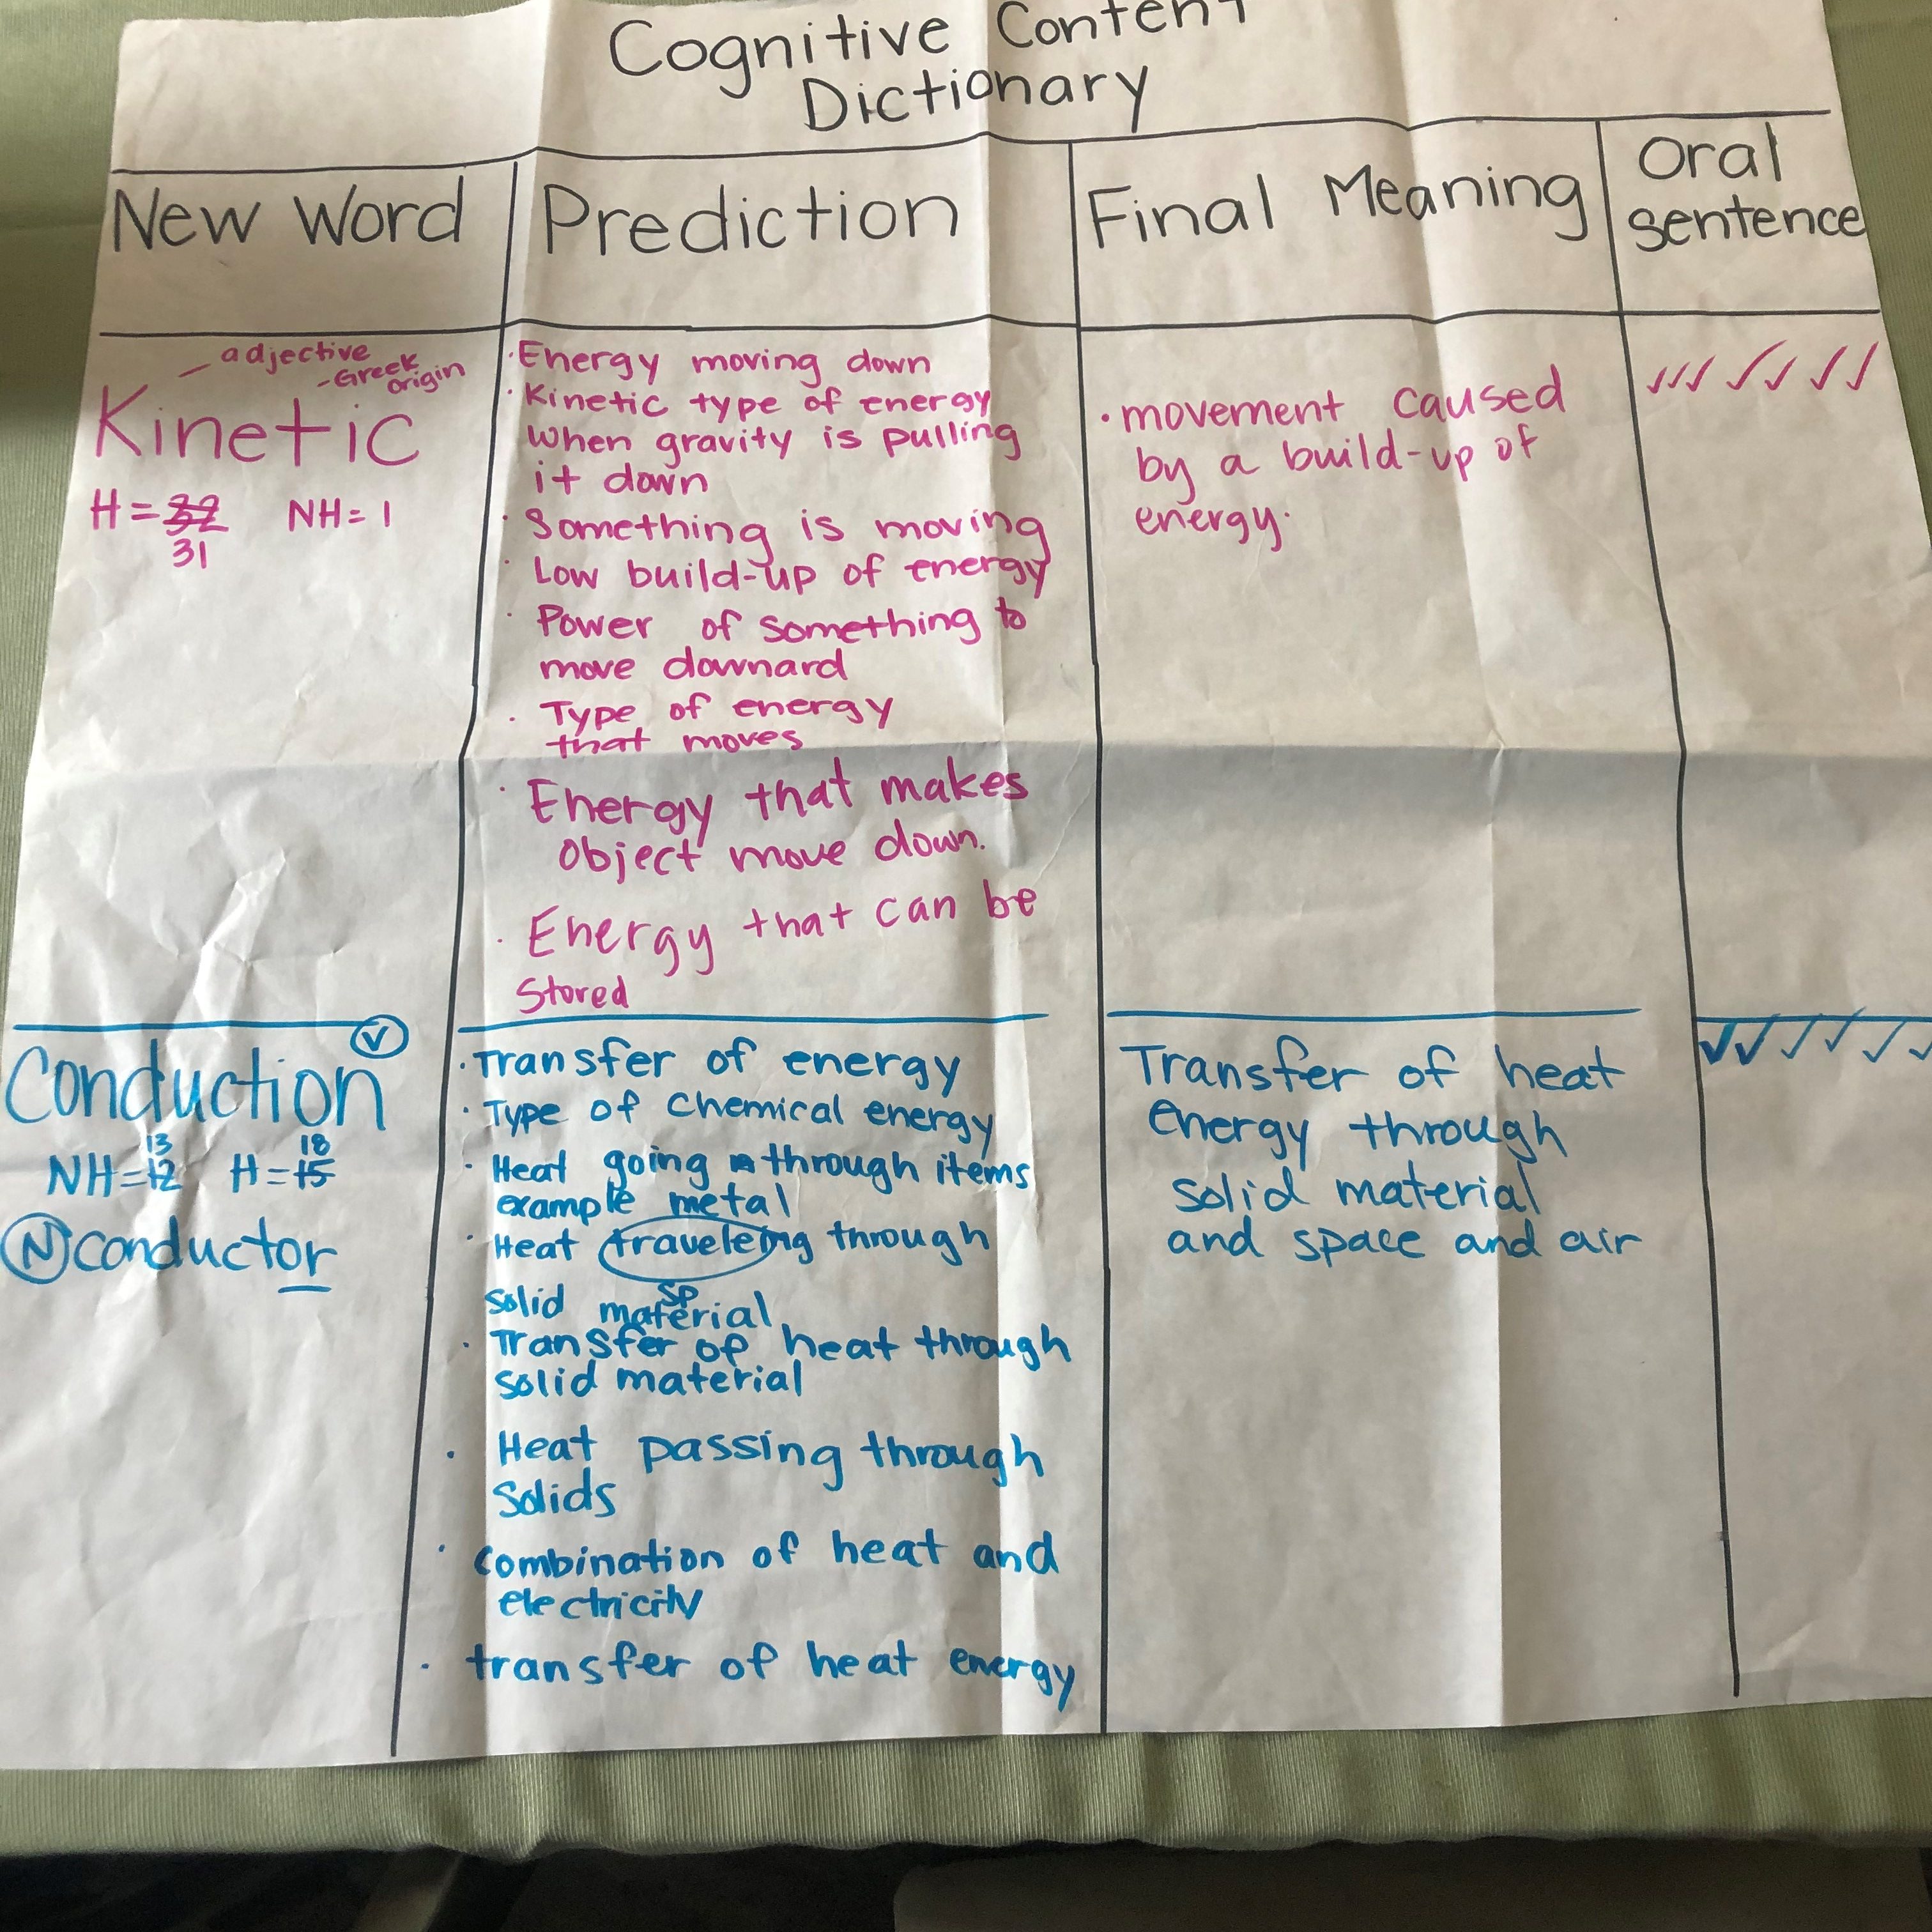 Cognitive Content
Dictionary
New Word
Prediction
Final Meaning
Oral
sentence
- adjective
- Greek
origin
Kinetic
H = 32 NH = 1
31
· Energy moving down
· Kinetic type of energy
when gravity is pulling
it down
· Something is moving
· Low build-up of energy
· Power of something to
move downard
· Type of energy
that moves
· Energy that makes
object move down.
· Energy that can be
stored
· movement caused
by a build-up of
energy.
✓✓✓ ✓✓ ✓✓
V
Conduction
13 18
NH = 12 H = 15
N conductor
· Transfer of energy
· Type of chemical energy
· Heat going through items
example metal
· Heat traveleing through
sp
solid material
· Transfer of heat through
solid material
· Heat passing through
Solids
· combination of heat and
electricity
· transfer of heat energy
Transfer of heat
energy through
solid material
and space and air
✓✓✓✓✓✓